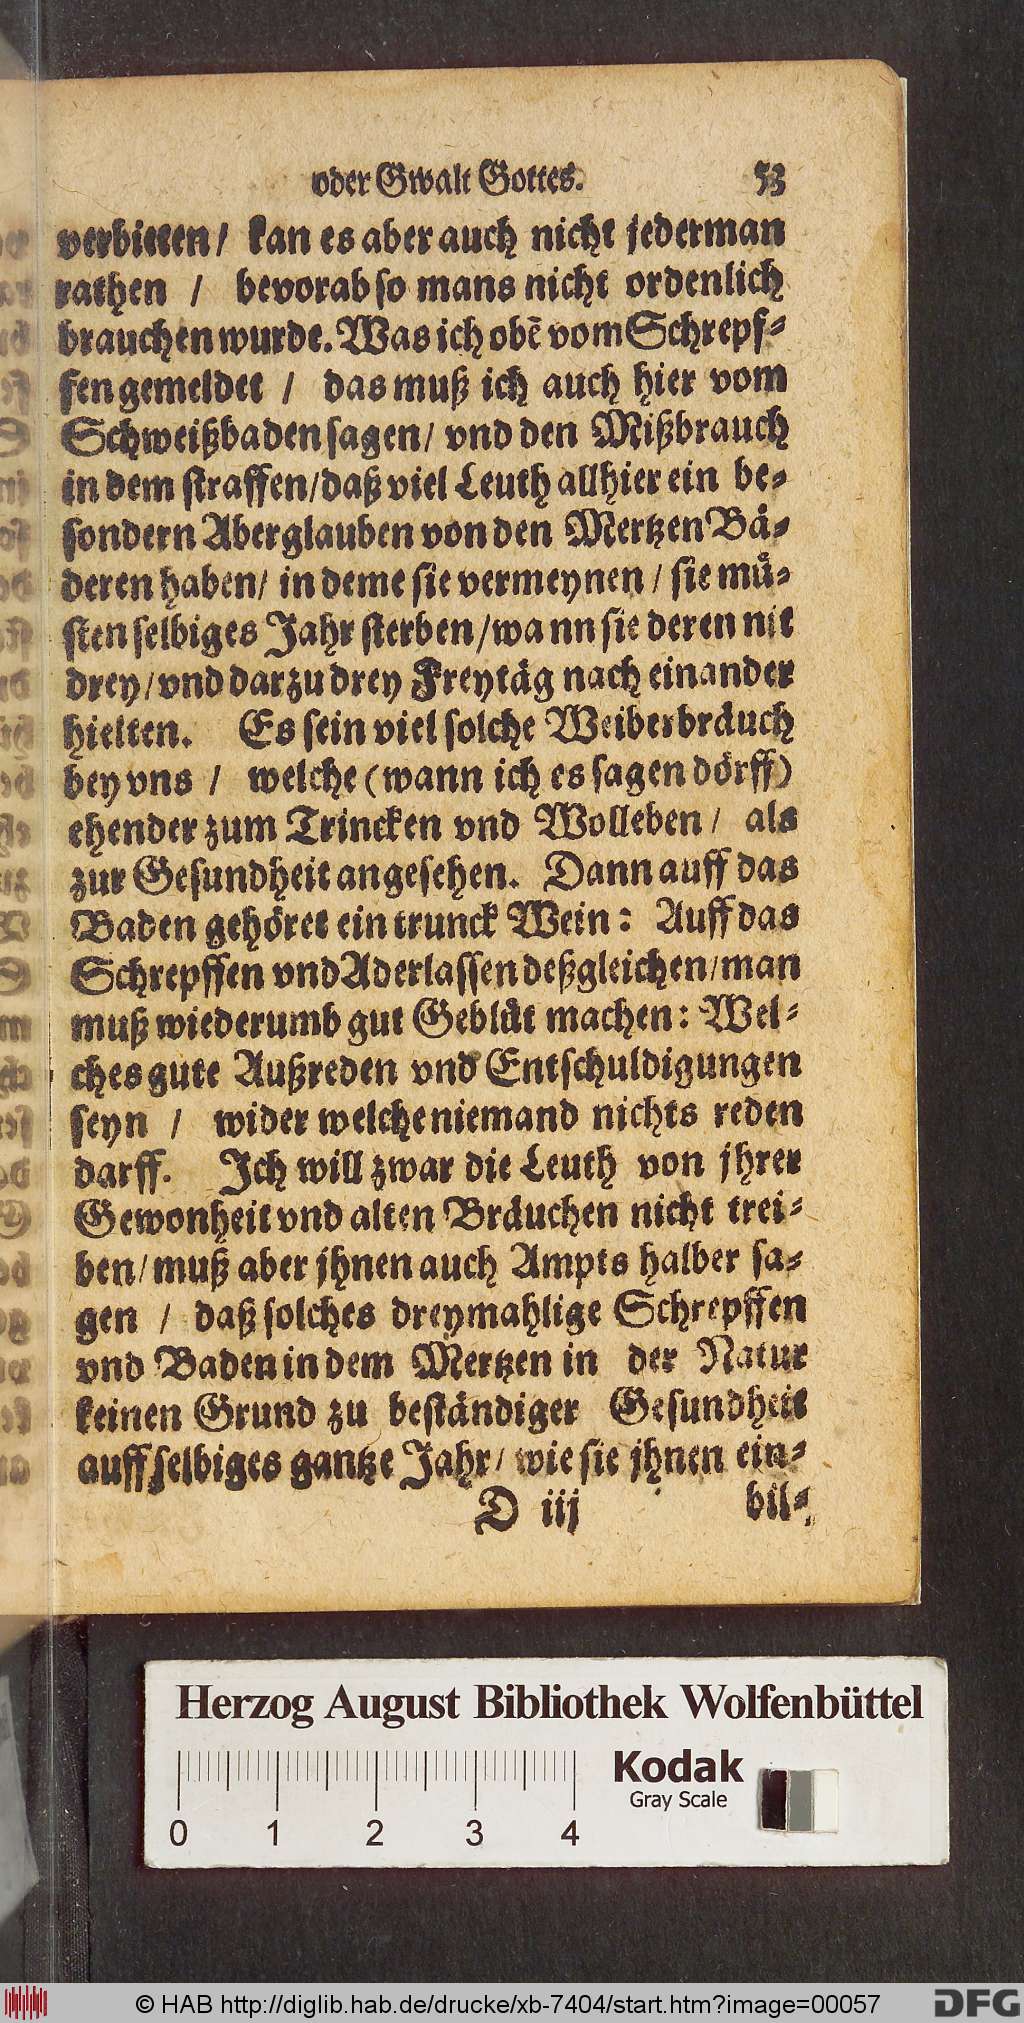 oder Gwalt Gottes. 53
verbieten / kan es aber auch nicht jederman
rathen / bevorab so mans nicht ordenlich
brauchen wurde. Was ich obē vom Schrepf-
fen gemeldet / das muß ich auch hier vom
Schweißbaden sagen / vnd den Mißbrauch
in dem straffen / daß viel Leuth allhier ein be-
sondern Aberglauben von den Mertzen Bå-
deren haben / in deme sie vermeynen / sie mů-
sten selbiges Jahr sterben / wann sie deren nit
drey / vnd darzu drey Freytäg nach einander
hielten. Es sein viel solche Weiberbräuch
bey vns / welche (wann ich es sagen dörff)
ehender zum Trincken vnd Wolleben / als
zur Gesundheit angesehen. Dann auff das
Baden gehöret ein trunck Wein: Auff das
Schrepffen vnd Aderlassen deßgleichen / man
muß wiederumb gut Geblåt machen: Wel-
ches gute Außreden vnd Entschuldigungen
seyn / wider welche niemand nichts reden
darff. Ich will zwar die Leuth von jhrer
Gewonheit vnd alten Bräuchen nicht trei-
ben / muß aber jhnen auch Ampts halber sa-
gen / daß solches dreymahlige Schrepffen
vnd Baden in dem Mertzen in der Natur
keinen Grund zu beständiger Gesundheit
auff selbiges gantze Jahr / wie sie jhnen ein-
D iij bil-
Herzog August Bibliothek Wolfenbüttel
Kodak
Gray Scale
0 1 2 3 4
© HAB http://diglib.hab.de/drucke/xb-7404/start.htm?image=00057
DFG